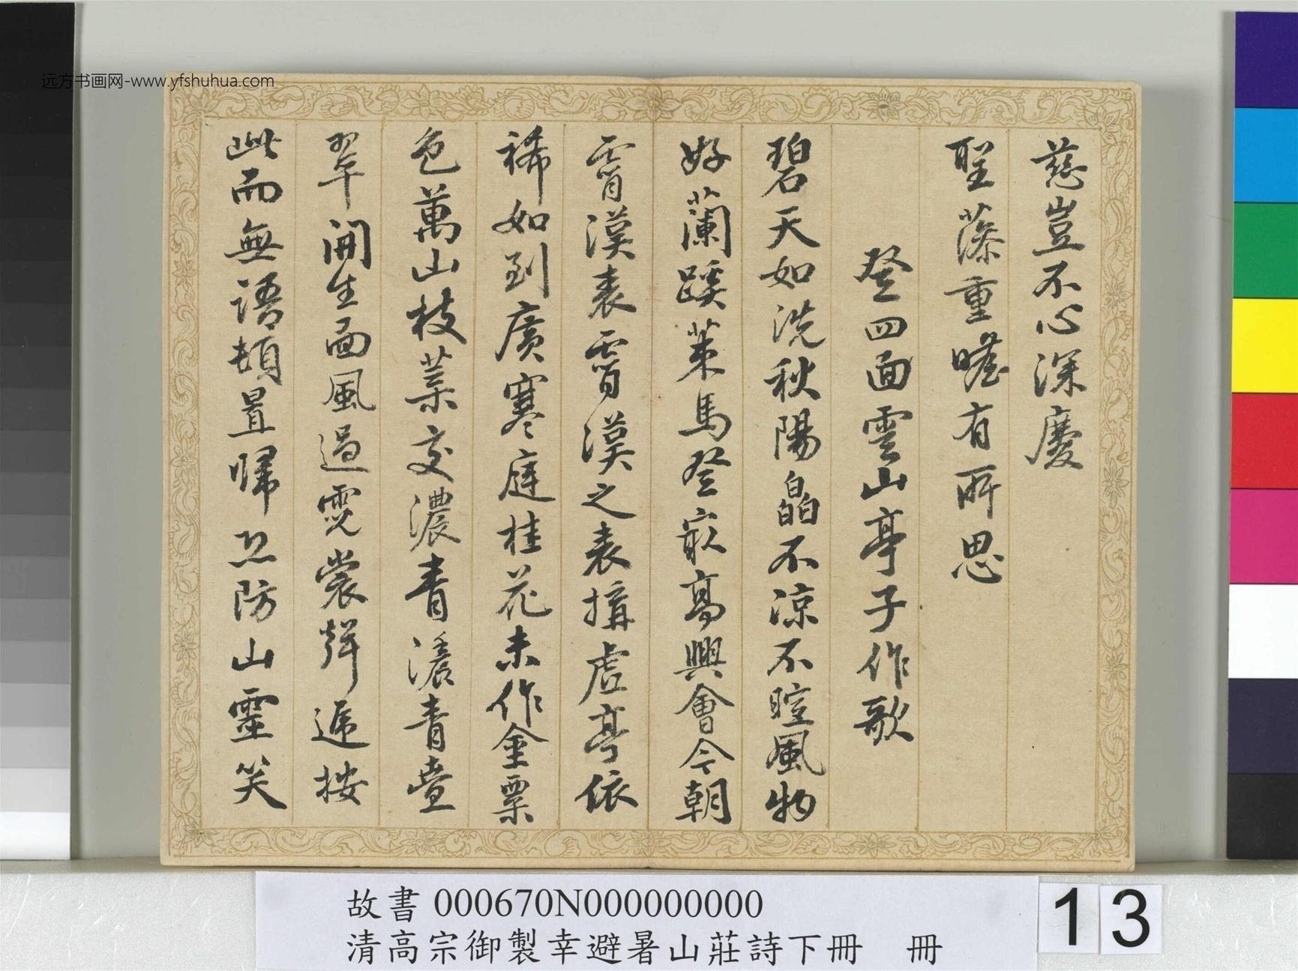 远方书画网-www.yfshuhua.com
慈豈不心深慶
聖藻重瞻有所思
登四面雲山亭子作歌
碧天如洗秋陽皛不涼不暄風物
好蘭蹊策馬登嶔高興會今朝
霄漢表霄漢之表構虛亭依
稀如到廣寒庭桂花未作金粟
色萬山枝葉交濃青濃青澹青疊
翠開生面風過霓裳聲遞按
此而無語頓置歸恐防山靈笑
故書 000670N000000000
清高宗御製幸避暑山莊詩下冊 冊
13